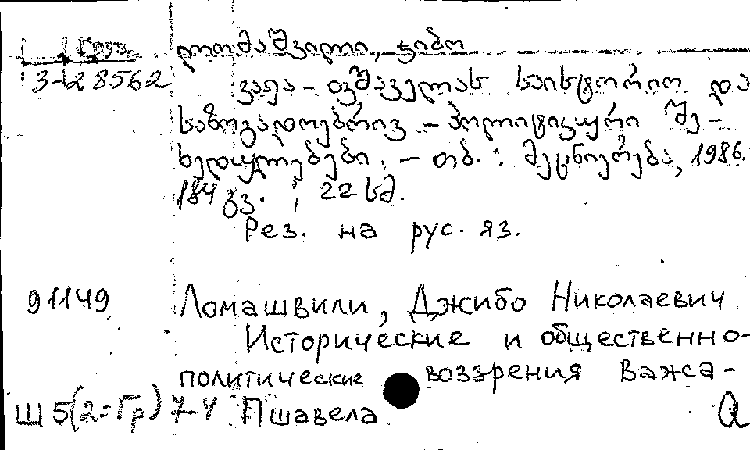 Груз. ლომაშვილი, ჯიბო
3-28562 ვაჟა-ფშაველას საისტორიო და
საზოგადოებრივ-პოლიტიკური შე-
ხედულებები. – თბ. : მეცნიერება, 1986.
184 გვ. ; 22 სმ.
Рез. на рус. яз.
91149 Ломашвили, Джибо Николаевич
Исторические и общественно-
политические воззрения Важса-
Ш5(2=Гр)7-4 Пшавела